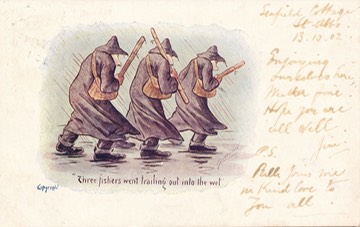 Seafield Cottage
St. Abbs.
13.10.02
Enjoying
ourselves fine.
Hope you are
all well.
P.S.
joins me
in kind love to
you all.
"Three fishers went trailing out into the wet"
Copyright